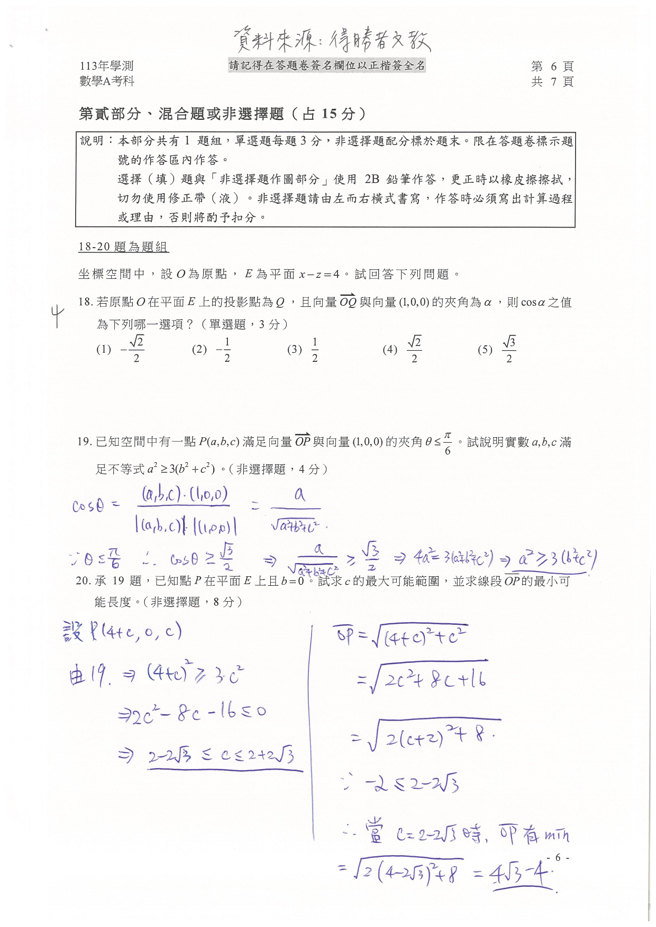 資料來源:得勝者文教
113年學測
數學A考科
請記得在答題卷簽名欄位以正楷簽全名
第 6 頁
共 7 頁
第貳部分、混合題或非選擇題(占 15 分)
說明:本部分共有 1 題組,單選題每題 3 分,非選擇題配分標於題末。限在答題卷標示題
號的作答區內作答。
選擇(填)題與「非選擇題作圖部分」使用 2B 鉛筆作答,更正時以橡皮擦擦拭,
切勿使用修正帶(液)。非選擇題請由左而右橫式書寫,作答時必須寫出計算過程
或理由,否則將酌予扣分。
18-20 題為題組
坐標空間中,設 O 為原點,E 為平面 x−z=4。試回答下列問題。
4
18. 若原點 O 在平面 E 上的投影點為 Q,且向量 OQ 與向量 (1,0,0) 的夾角為 α,則 cosα 之值
為下列哪一選項?(單選題,3 分)
(1) −√2/2 (2) −1/2 (3) 1/2 (4) √2/2 (5) √3/2
19. 已知空間中有一點 P(a,b,c) 滿足向量 OP 與向量 (1,0,0) 的夾角 θ ≤ π/6。試說明實數 a,b,c 滿
足不等式 a² ≥ 3(b² + c²)。(非選擇題,4 分)
cosθ = (a,b,c)·(1,0,0) / |(a,b,c)| |(1,0,0)| = a / √a²+b²+c².
∵ θ ≤ π/6 ∴ cosθ ≥ √3/2 ⇒ a/√a²+b²+c² ≥ √3/2 ⇒ 4a² = 3(a²+b²+c²) ⇒ a² ≥ 3(b²+c²)
20. 承 19 題,已知點 P 在平面 E 上且 b=0。試求 c 的最大可能範圍,並求線段 OP 的最小可
能長度。(非選擇題,8 分)
設 P(4+c, 0, c)
由19. ⇒ (4+c)² ≥ 3c²
⇒ 2c² − 8c − 16 ≤ 0
⇒ 2−2√3 ≤ c ≤ 2+2√3
OP = √(4+c)²+c²
= √2c²+8c+16
= √2(c+2)²+8.
∵ −2 ≤ 2−2√3
∴ 當 c=2−2√3 時, OP 有 min
= √2(4−2√3)²+8 = 4√3−4.
- 6 -